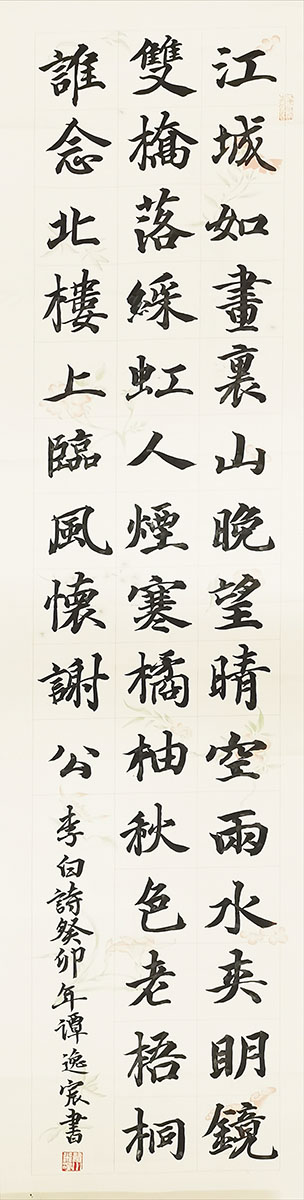 江城如畫裏山晚望晴空雨水夾明鏡
雙橋落綵虹人煙寒橘柚秋色老梧桐
誰念北樓上臨風懷謝公
李白詩癸卯年譚逸宸書